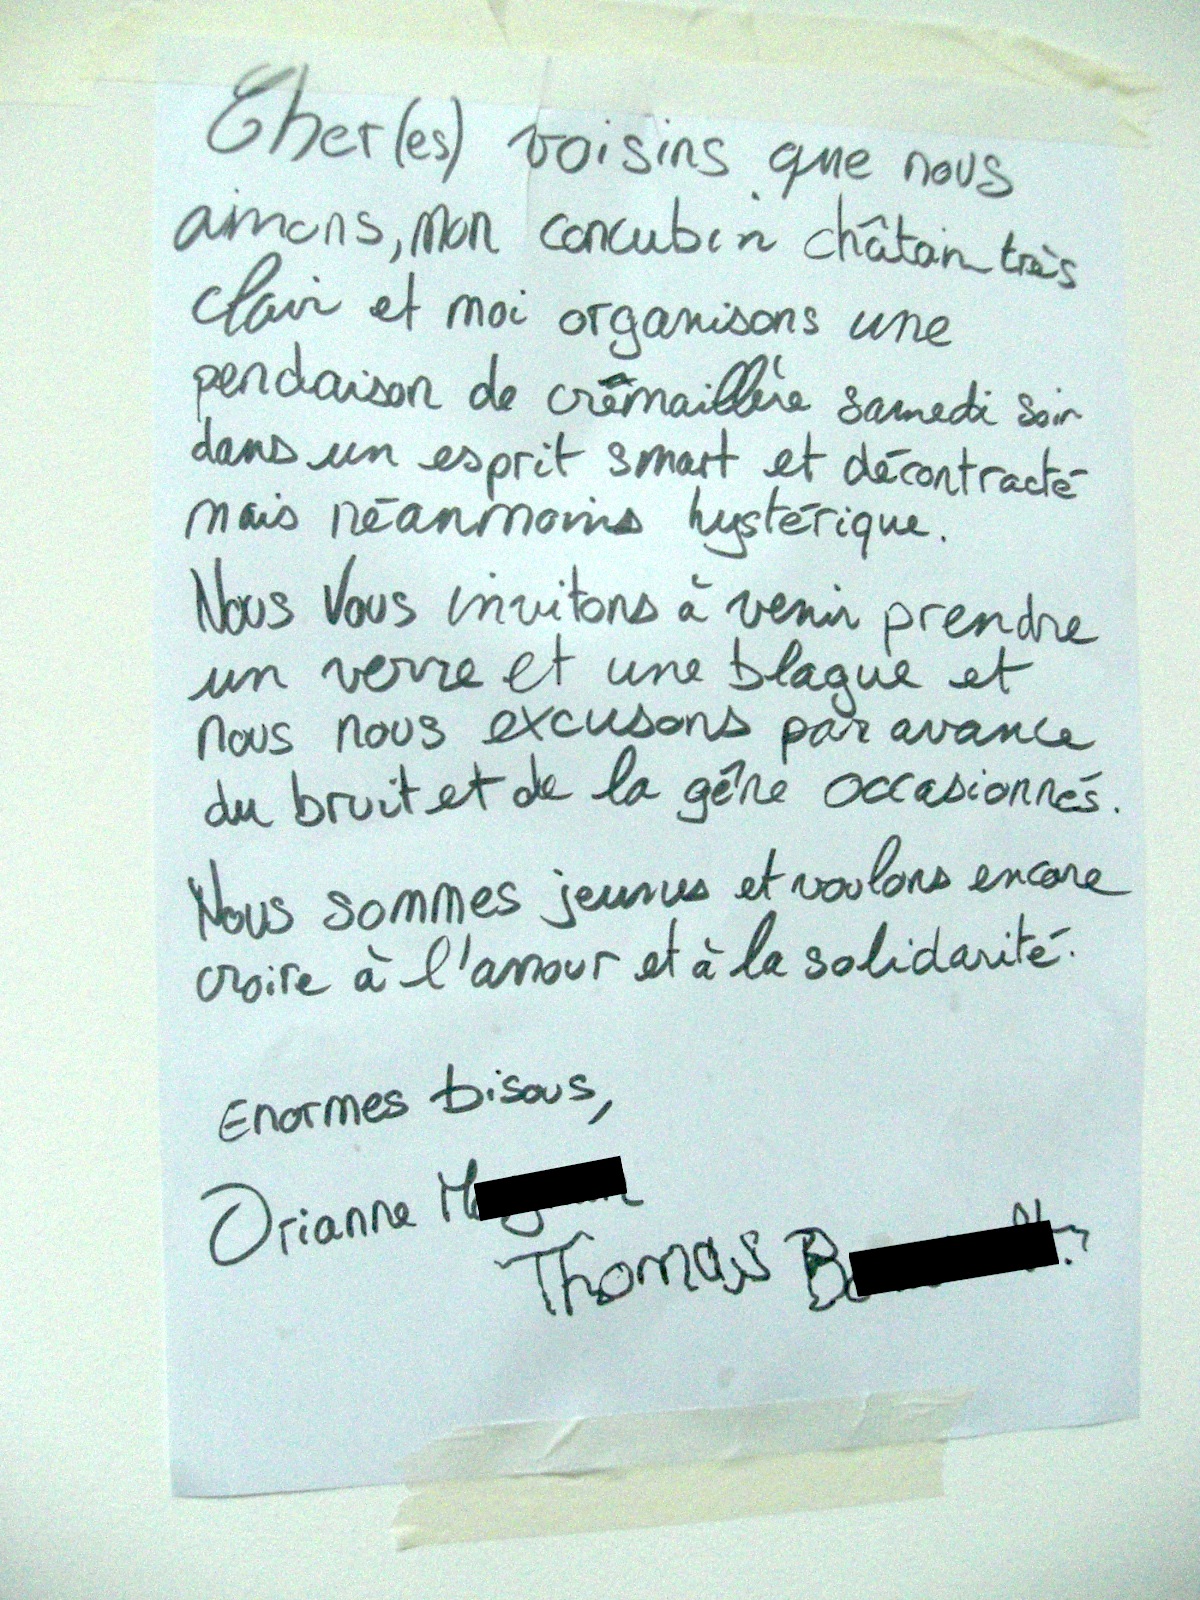 Cher(es) voisins que nous
aimons, mon concubin châtain très
clair et moi organisons une
pendaison de crémaillère samedi soir
dans un esprit smart et décontracté
mais néanmoins hystérique.
Nous Vous invitons à venir prendre
un verre et une blague et
nous nous excusons par avance
du bruit et de la gêne occasionnés.
Nous sommes jeunes et voulons encore
croire à l'amour et à la solidarité.
Enormes bisous,
Orianne
Thomas